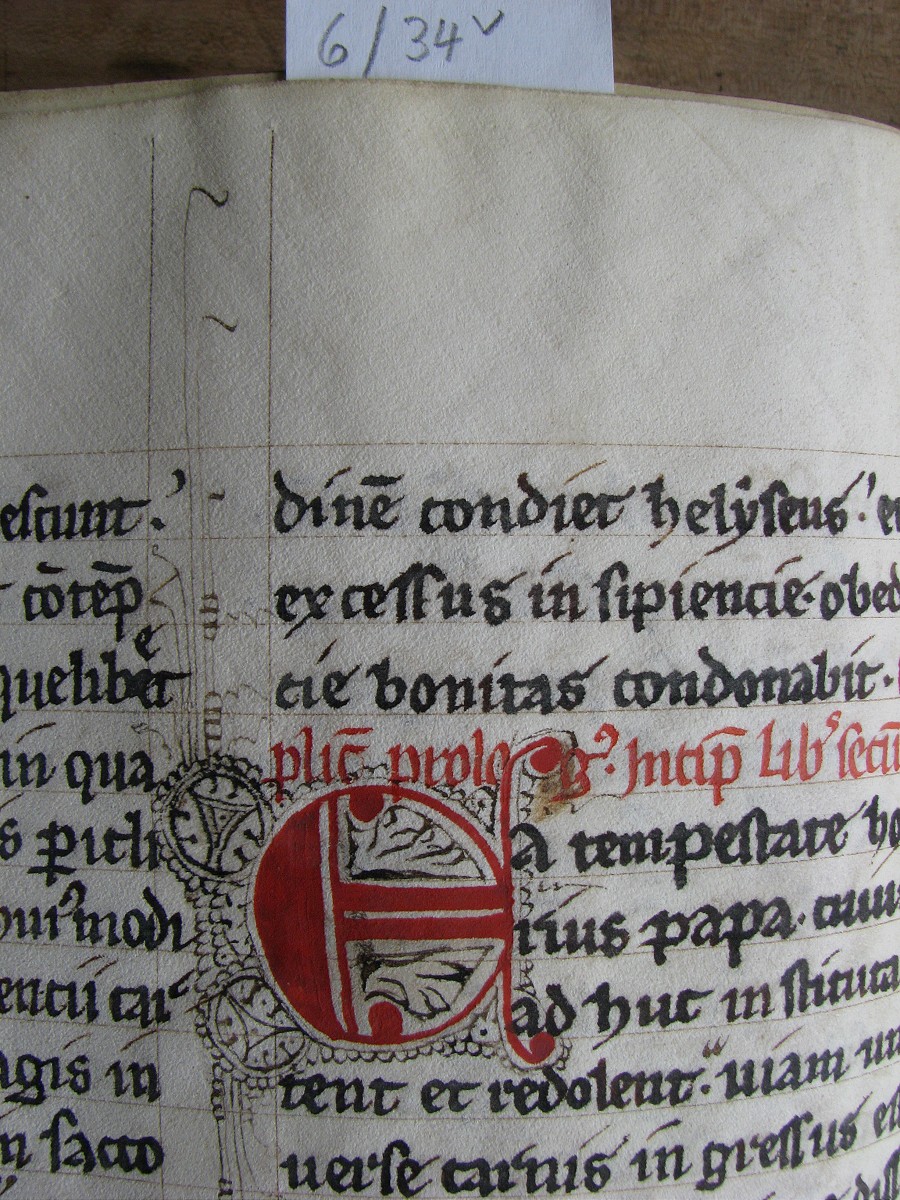 6/34v
escunt.
cōtēp̄
quelibet
in qua
s ꝑicli
modi
encii cai
agis in
n sacco
dinē condiet helyseus. et
excessus in sipiencie. obed
cie bonitas condonabit.
plic̄ prologꝰ. Incip̄ Libꝰ secū
Ea tempestate ho
rius papa. cuiu
ad huc in stituta
tent et redolent. uiam un
uerse carnis in gressus es